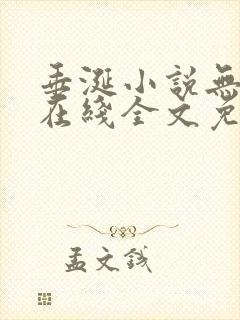 垂涎小說無
在綫全文免
孟文錢